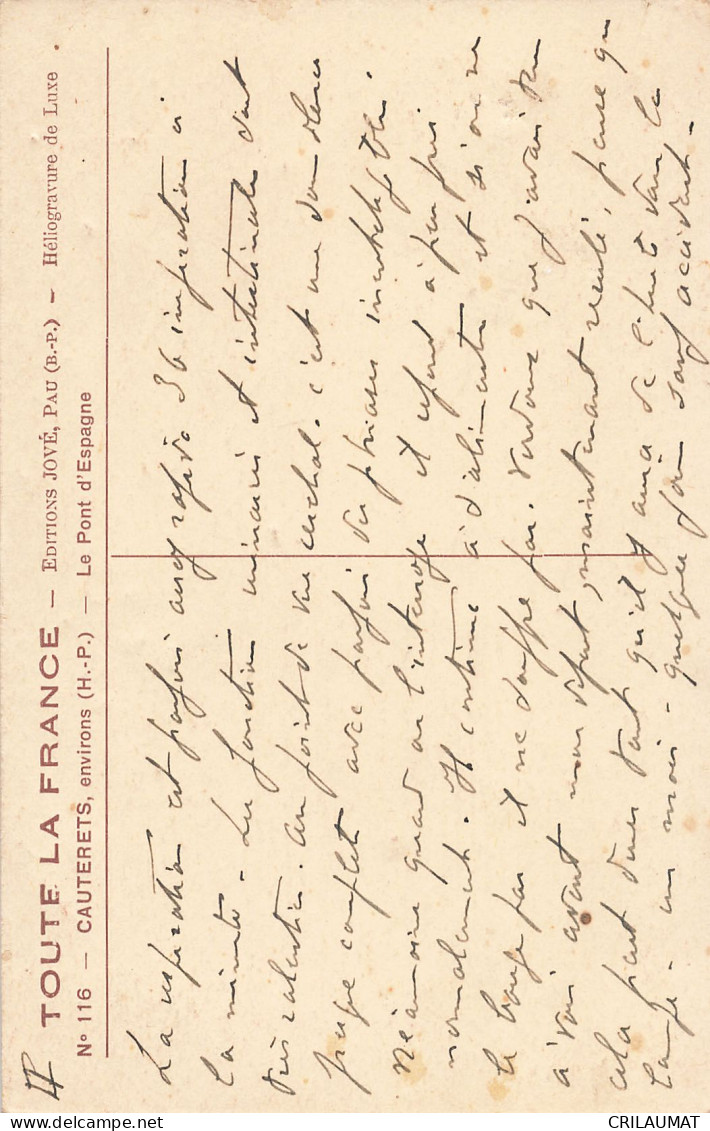 TOUTE LA FRANCE — EDITIONS JOVÉ, PAU (B.-P.) — Héliogravure de Luxe
N° 116 — CAUTERETS, environs (H.-P.) — Le Pont d'Espagne
La respiration est parfois assez rapide 36 inspirations à
la minute. Les fonctions urinaires et intestinales sont
très ralenties. Au point de vue cérébral. c'est une somnolence
presque complète avec parfois des phrases inintelligibles.
Néanmoins quand on l'interroge il répond à peu près
normalement. Il continue à s'alimenter et si on ne
le bouge pas il ne souffre pas. rendons que j'avais
à voir avant mon départ, maintenant reculé, parce que
cela peut durer tant qu'il y aura de l'huile dans la
lampe. un mois - quelques jours sauf accident.
CRILAUMAT